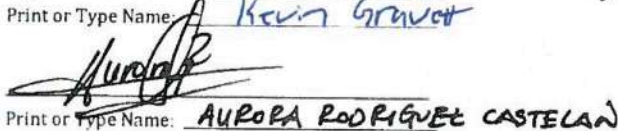 Print or Type Name: Kevin Gravett
Print or Type Name: AURORA RODRIGUEZ CASTELAN